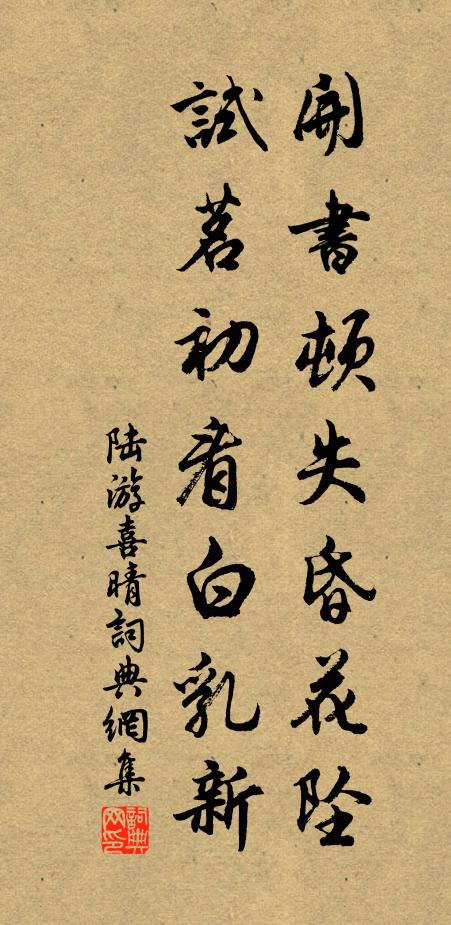 開書頓失昏花墜
試茗初看白乳新
陆游喜晴詞典網集
詞典网印